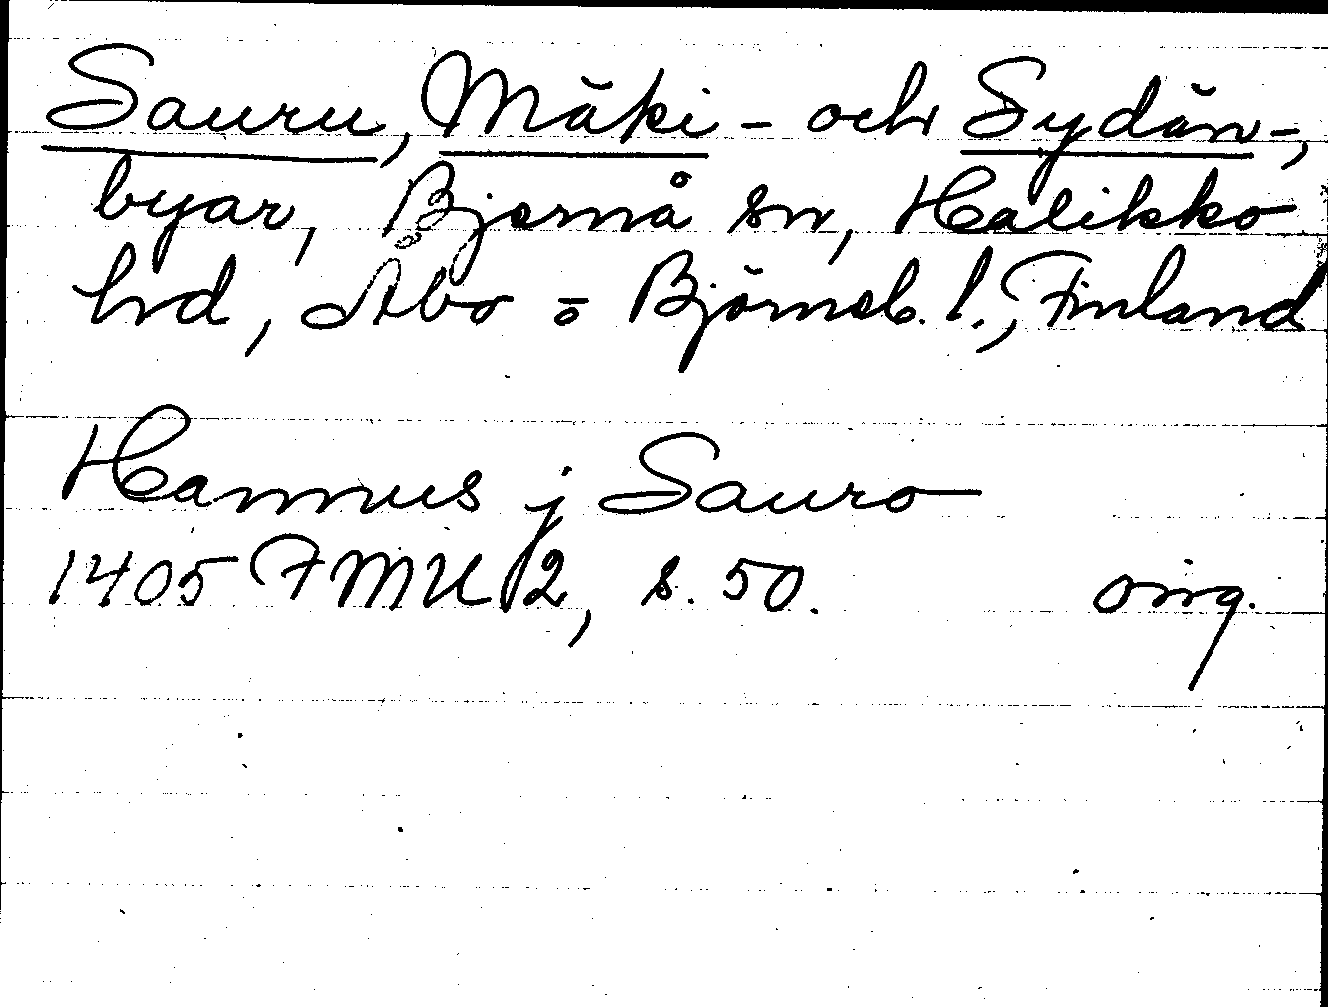 Sauru, Mäki- och Sydän-,
byar, Bjernå sn, Halikko
hd, Åbo o Björneb. l., Finland
Hannus j Sauro
1405 FMU 2, s. 50. orig.